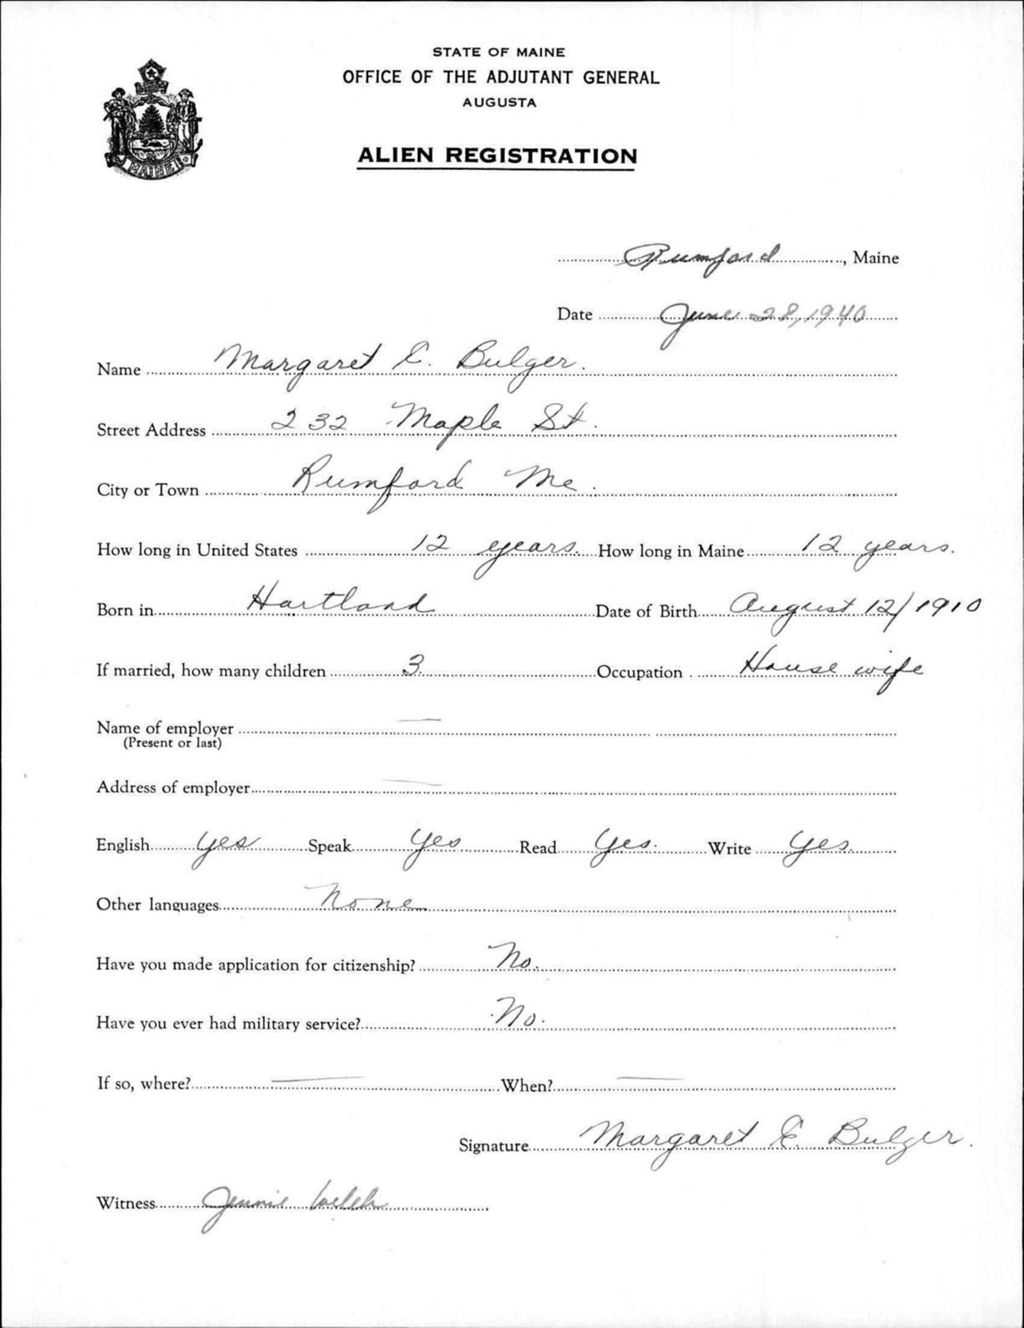 STATE OF MAINE
OFFICE OF THE ADJUTANT GENERAL
AUGUSTA
ALIEN REGISTRATION
MAINE
Rumford, Maine
Date June 28, 1940
Name Margaret E. Bulger.
Street Address 232 Maple St.
City or Town Rumford Me.
How long in United States 12 years. How long in Maine 12 years.
Born in Hartland Date of Birth August 12/1910
If married, how many children 3. Occupation House wife
Name of employer —
(Present or last)
Address of employer —
English Yes Speak Yes Read Yes. Write Yes.
Other languages None
Have you made application for citizenship? No.
Have you ever had military service? No.
If so, where? — When? —
Signature Margaret E. Bulger.
Witness Jennie Welch